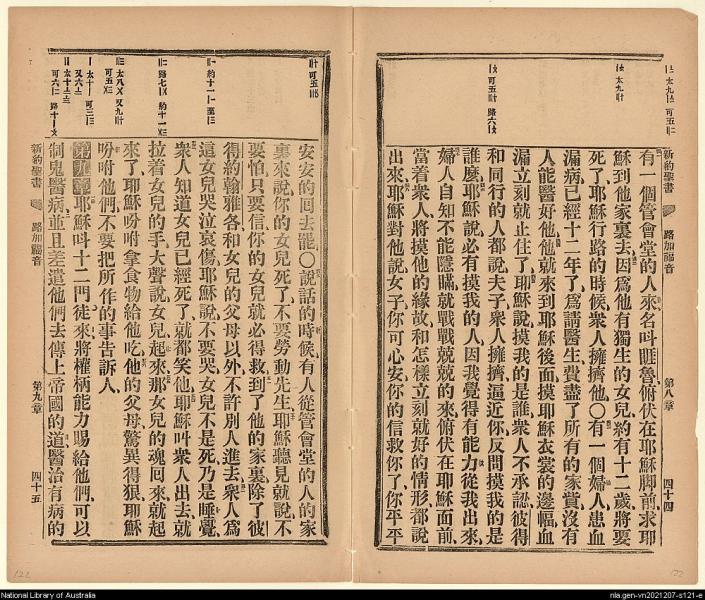 新約聖書 路加福音 第八章 四十四
有一個管會堂的人來名叫睚魯俯伏在耶穌脚前求耶
穌到他家裏去因爲他有獨生的女兒約有十二歲將要
死了耶穌行路的時候衆人擁擠他〇有一個婦人患血
漏病已經十二年了爲請醫生費盡了所有的家貲沒有
人能醫好他他就來到耶穌後面摸耶穌衣裳的邊幅血
漏立刻就止住了耶穌說摸我的是誰衆人不承認彼得
和同行的人都說夫子衆人擁擠逼近你反問摸我的是
誰麽耶穌說必有摸我的人因我覺得有能力從我出來
婦人自知不能隱瞞就戰戰兢兢的來俯伏在耶穌面前
當着衆人將摸他的緣故和怎樣立刻就好的情形都說
出來耶穌對他說女子你可心安你的信救你了你平平
安安的回去罷〇說話的時候有人從管會堂的人的家
裏來說你的女兒死了不要勞動先生耶穌聽見就說不
要怕只要信你的女兒就必得救到了他的家裏除了彼
得約翰雅各和女兒的父母以外不許別人進去衆人爲
這女兒哭泣哀傷耶穌說不要哭女兒不是死乃是睡覺
衆人知道女兒已經死了就都笑他耶穌叫衆人出去就
拉着女兒的手大聲說女兒起來那女兒的魂回來就起
來了耶穌吩咐拿食物給他吃他的父母驚異得狠耶穌
吩咐他們不要把所作的事告訴人
第九章耶穌叫十二門徒來將權柄能力賜給他們可以
制鬼醫病並且差遣他們去傳上帝國的道醫治有病的
新約聖書 路加福音 第九章 四十五
122
122
National Library of Australia
nla.gen-vn2021207-s121-e